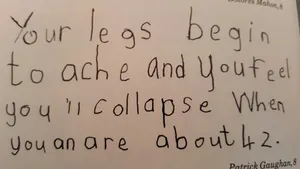 Dolores Mahon, 8
Your legs begin
to ache and you feel
you'll collapse When
you an are about 42.
Patrick Gaughan, 8